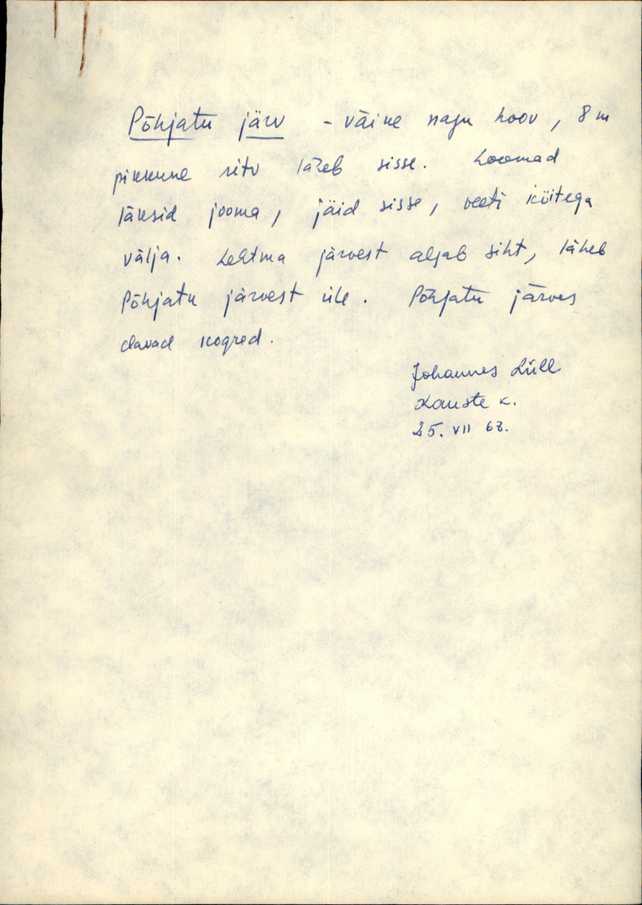 Põhjatu järv - väike nagu hoov, 8 m
pikkune ritv läheb sisse. Loomad
läksid jooma, jäid sisse, veeti köitega
välja. Lehtma järvest algab siht, läheb
Põhjatu järvest üle. Põhjatu järves
elavad kogred.
Johannes Lüll
Lauste k.
25. VII 68.